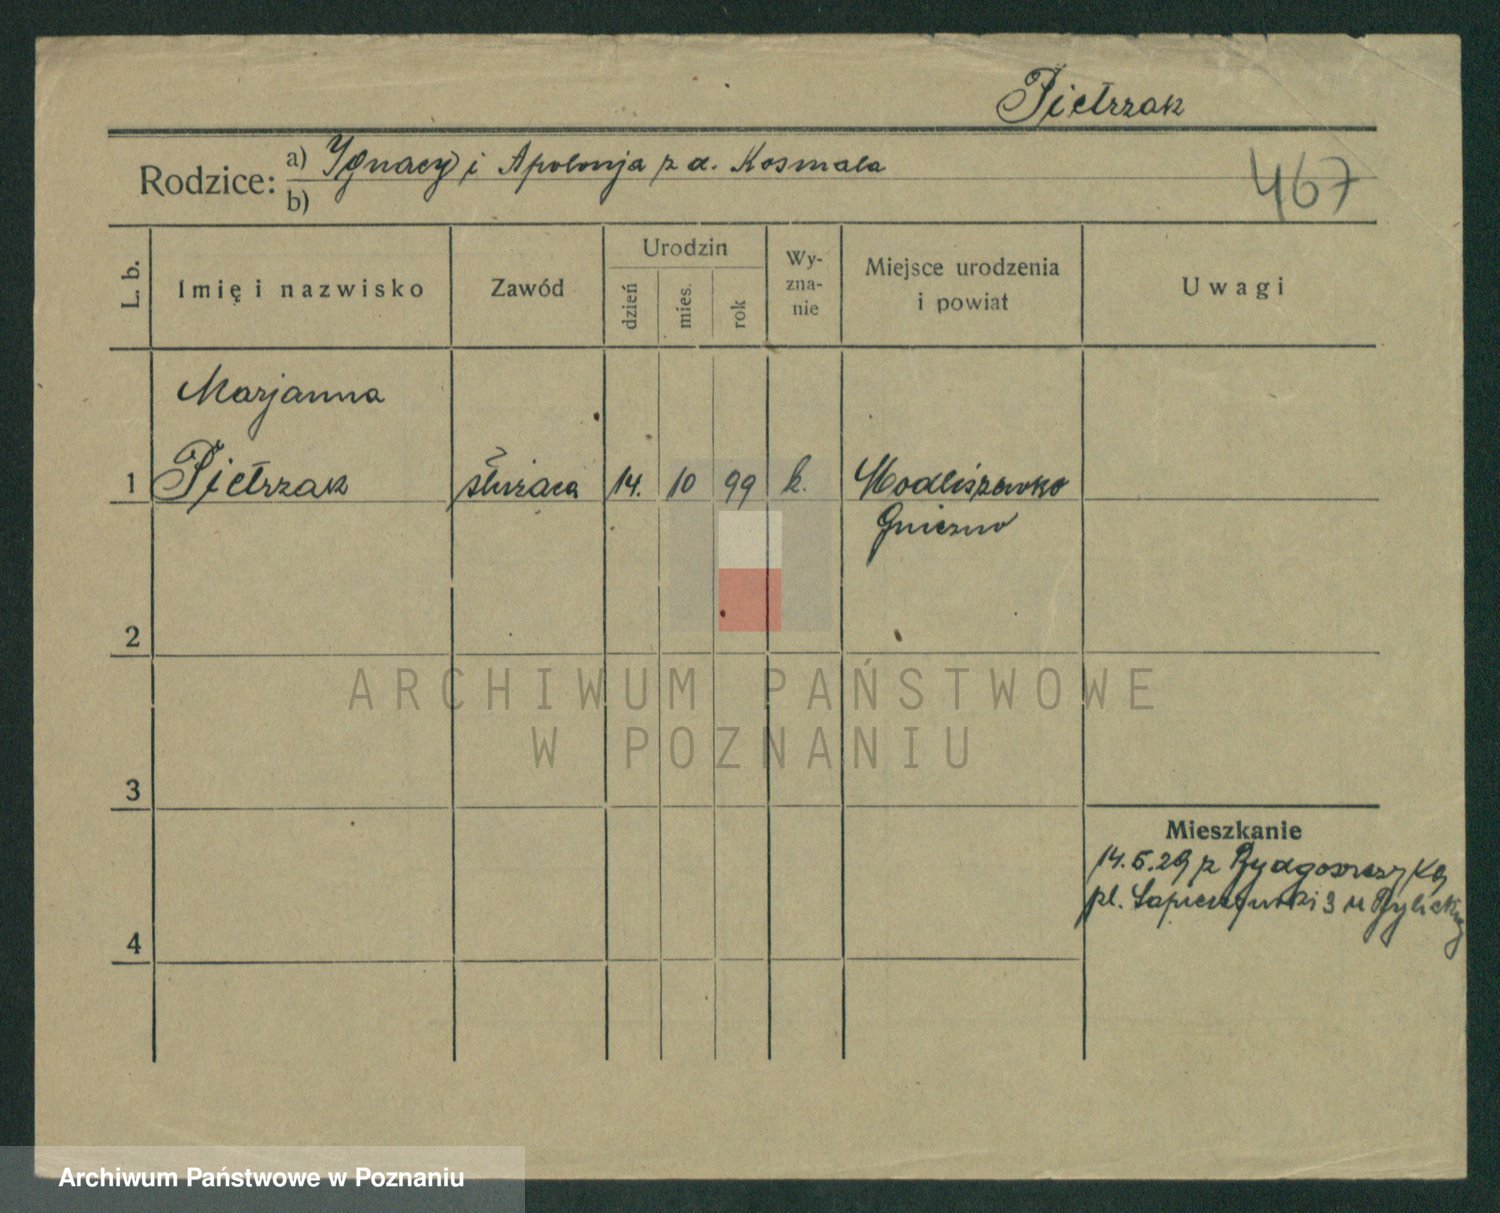 Pietrzak
Rodzice: a) Ignacy i Apolonja z d. Kosmala
b)
467
L. b.
Imię i nazwisko
Zawód
Urodzin
dzień
mies.
rok
Wy-
zna-
nie
Miejsce urodzenia
i powiat
Uwagi
Marjanna
1 Pietrzak służąca 14. 10 99 k. Modliszewko
Gniezno
2
3
4
ARCHIWUM PAŃSTWOWE
W POZNANIU
Mieszkanie
14.5.29 z Bydgoszczy
pl. Sapieżyński 3 u
Archiwum Państwowe w Poznaniu